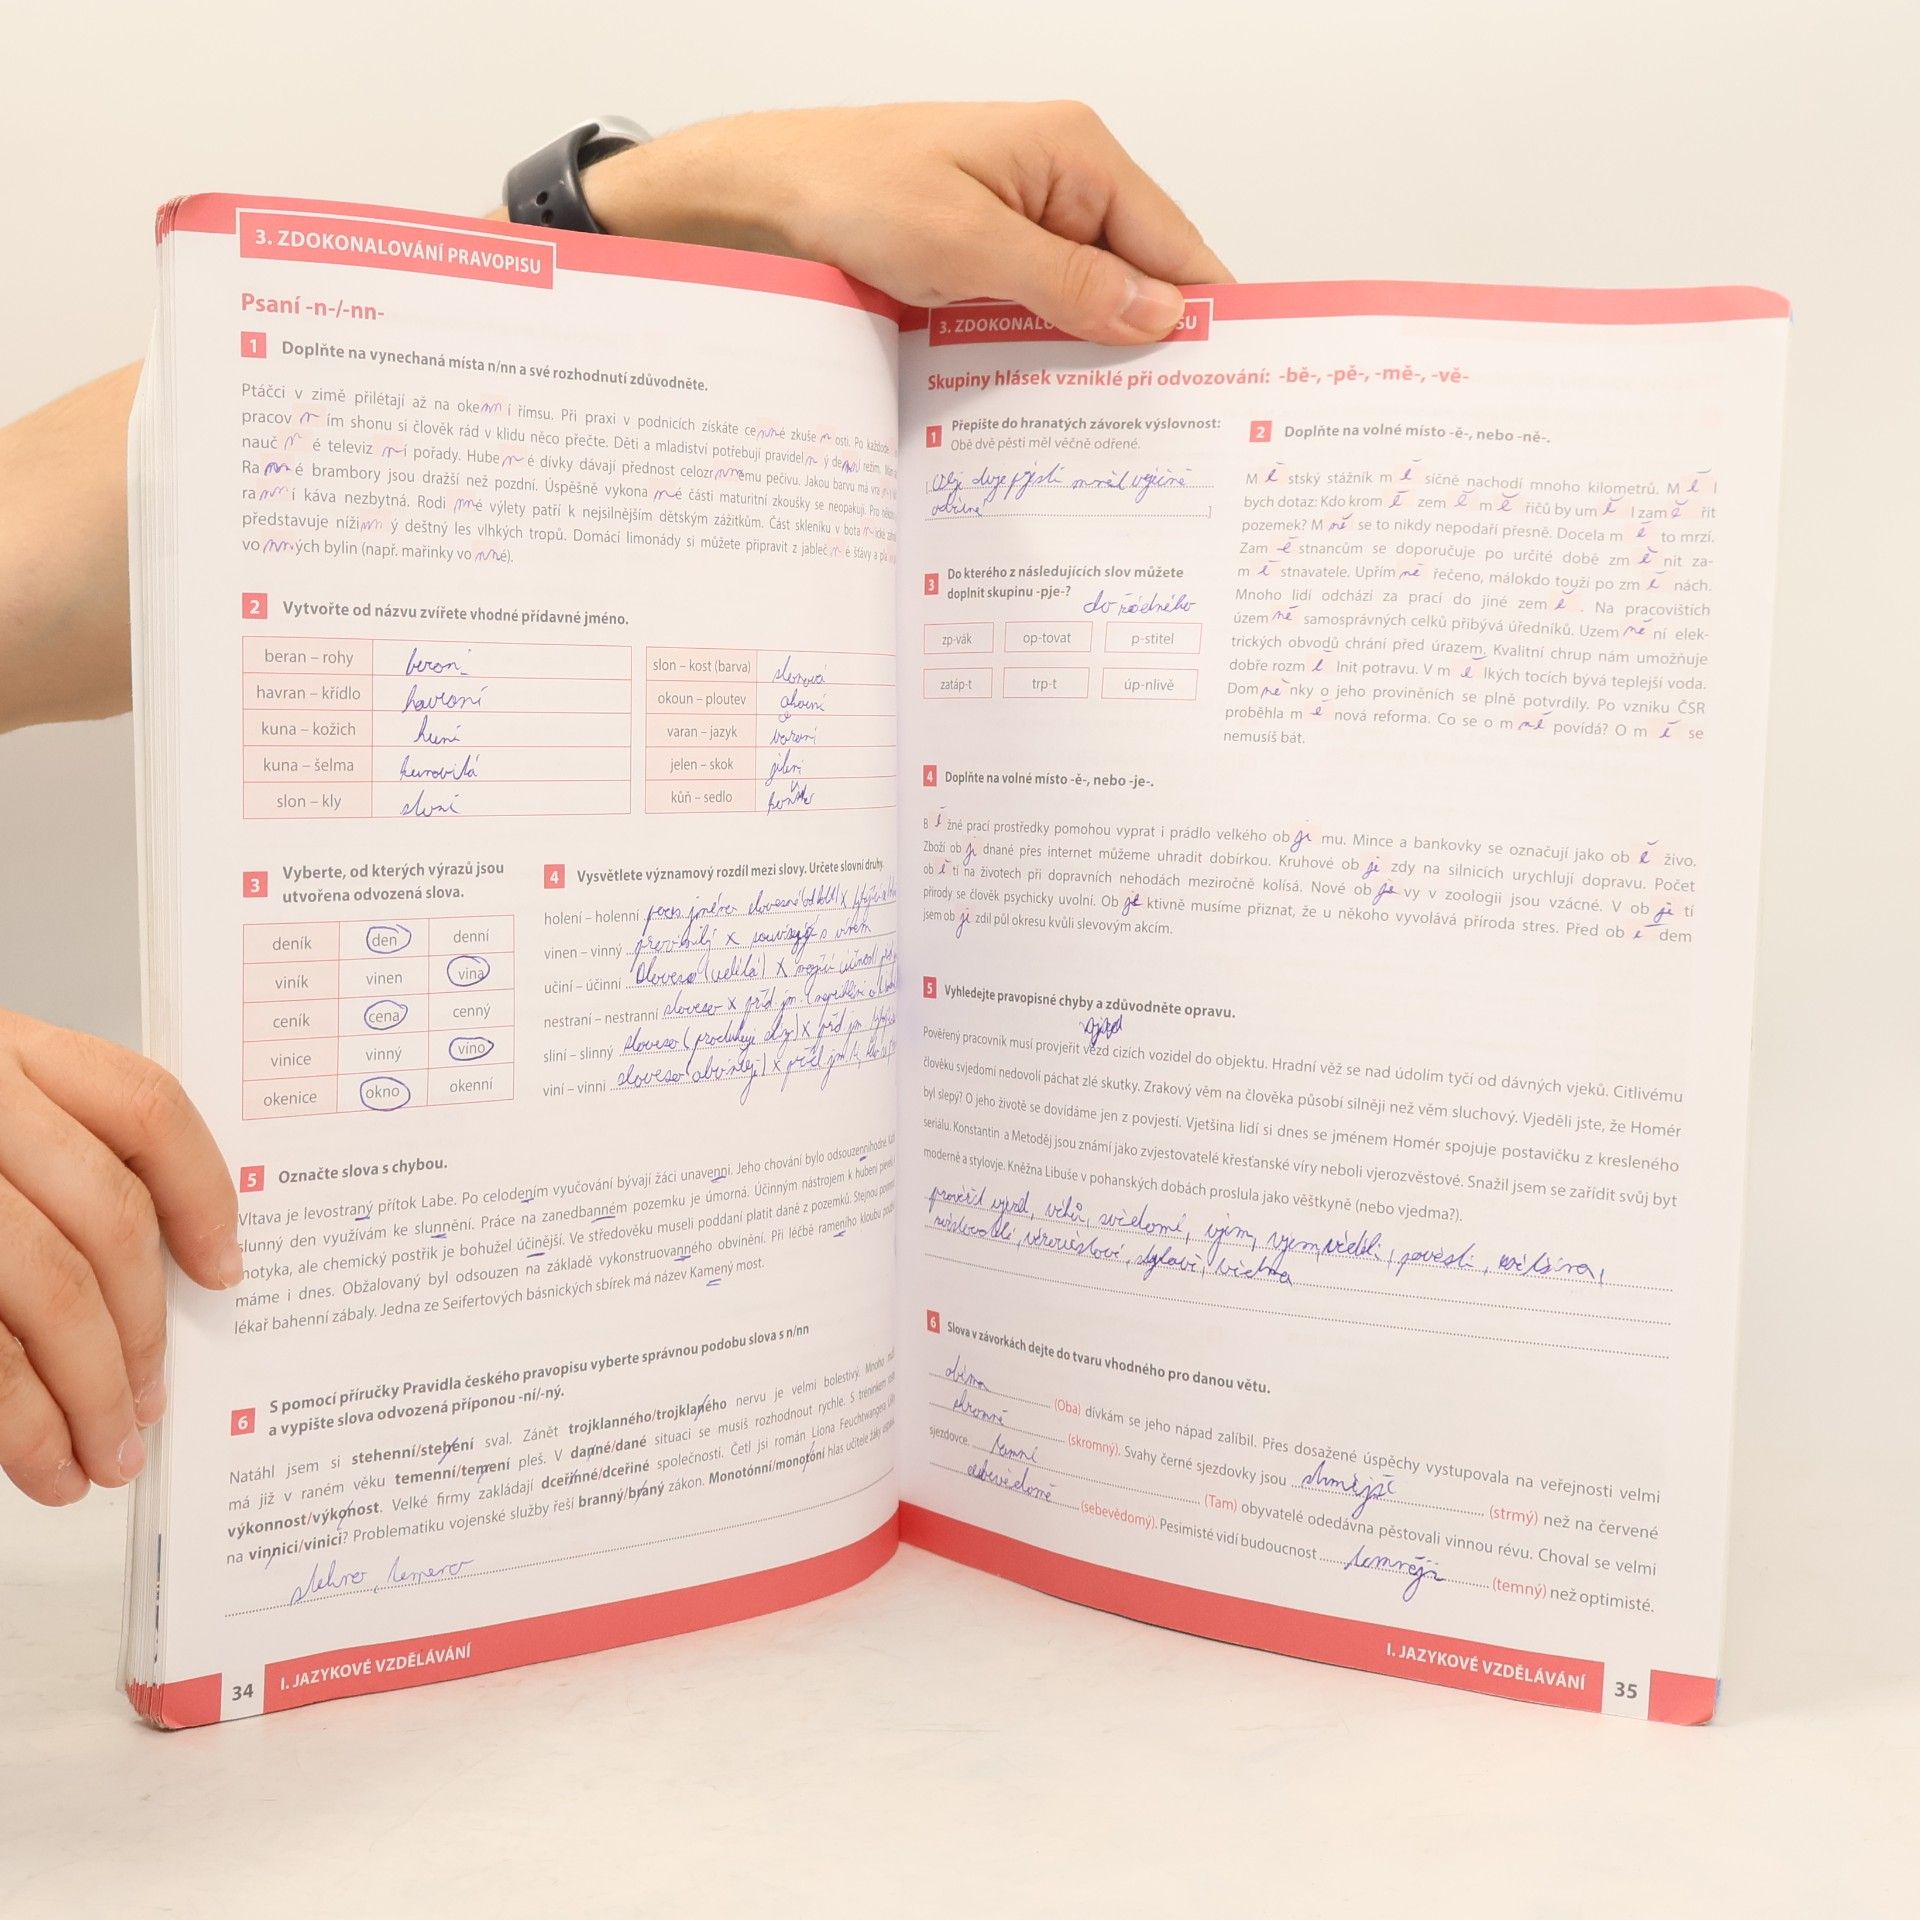 3. ZDOKONALOVÁNÍ PRAVOPISU
Psaní -n-/-nn-
1 Doplňte na vynechaná místa n/nn a své rozhodnutí zdůvodněte.
Ptáčci v zimě přilétají až na oke nn í římsu. Při praxi v podnicích získáte ce nn é zkuše n osti. Po každode
pracov n ím shonu si člověk rád v klidu něco přečte. Děti a mladiství potřebují pravidel n ý de nn í režim. Mám
nauč n é televiz n í pořady. Hube n é dívky dávají přednost celozr nn ému pečivu. Jakou barvu má vra
Ra nn é brambory jsou dražší než pozdní. Úspěšně vykona n é části maturitní zkoušky se neopakují. Pro
ra nn í káva nezbytná. Rodi nn é výlety patří k nejsilnějším dětským zážitkům. Část skleníku v bota n ické
představuje níži nn ý deštný les vlhkých tropů. Domácí limonády si můžete připravit z jableč n é šťávy a
vo nn ých bylin (např. mařinky vo nn é).
2 Vytvořte od názvu zvířete vhodné přídavné jméno.
beran – rohy beraní
havran – křídlo havraní
kuna – kožich kuní
kuna – šelma kunovitá
slon – kly sloní
slon – kost (barva) slonová
okoun – ploutev okouní
varan – jazyk varaní
jelen – skok jelení
kůň – sedlo koňské
3 Vyberte, od kterých výrazů jsou
utvořena odvozená slova.
deník den denní
viník vinen vina
ceník cena cenný
vinice vinný víno
okenice okno okenní
4 Vysvětlete významový rozdíl mezi slovy. Určete slovní druhy.
holení – holenní podst. jméno slovesné (od holit) x
vinen – vinný provinilý x související s vínem
učiní – účinní sloveso (udělá) x mající účinnost
nestraní – nestranní sloveso x příd. jm.
sliní – slinný sloveso (produkuje sliny) x příd. jm.
viní – vinní sloveso (obviňují) x příd. jm.
5 Označte slova s chybou.
Vltava je levostraný přítok Labe. Po celodením vyučování bývají žáci unavenni. Jeho chování bylo odsouzenníhodné.
slunný den využívám ke slunnění. Práce na zanedbanném pozemku je úmorná. Účinným nástrojem k hubení
motyka, ale chemický postřik je bohužel účinější. Ve středověku museli poddaní platit dané z pozemků. Stejnou
máme i dnes. Obžalovaný byl odsouzen na základě vykonstruovanného obvinění. Při léčbě rameního kloubu
lékař bahenní zábaly. Jedna ze Seifertových básnických sbírek má název Kamený most.
6 S pomocí příručky Pravidla českého pravopisu vyberte správnou podobu slova s n/nn
a vypište slova odvozená příponou -ní/-ný.
Natáhl jsem si stehenní/stehení sval. Zánět trojklanného/trojklaného nervu je velmi bolestivý. Mnoho
má již v raném věku temenní/temení pleš. V danné/dané situaci se musíš rozhodnout rychle. S tréninkem
výkonnost/výkonost. Velké firmy zakládají dceřinné/dceřiné společnosti. Četl jsi román Liona Feuchtwangera
na vinnici/vinici? Problematiku vojenské služby řeší branný/braný zákon. Monotónní/monotóní hlas učitele žáky
stehno, temeno
34 I. JAZYKOVÉ VZDĚLÁVÁNÍ
3. ZDOKONAL SU
Skupiny hlásek vzniklé při odvozování: -bě-, -pě-, -mě-, -vě-
1 Přepište do hranatých závorek výslovnost:
Obě dvě pěsti měl věčně odřené.
[obje dvje pjesti mněl vječně
odřené]
2 Doplňte na volné místo -ě-, nebo -ně-.
M ě stský stážník m ě síčně nachodí mnoho kilometrů. M ě l
bych dotaz: Kdo krom ě zem ě m ě řičů by um ě l zam ě řit
pozemek? M ně se to nikdy nepodaří přesně. Docela m ě to mrzí.
Zam ě stnancům se doporučuje po určité době zm ě nit za-
m ě stnavatele. Upřím ně řečeno, málokdo touží po zm ě nách.
Mnoho lidí odchází za prací do jiné zem ě . Na pracovištích
územ ně samosprávných celků přibývá úředníků. Uzem ně ní elek-
trických obvodů chrání před úrazem. Kvalitní chrup nám umožňuje
dobře rozm ě lnit potravu. V m ě lkých tocích bývá teplejší voda.
Dom ně nky o jeho proviněních se plně potvrdily. Po vzniku ČSR
proběhla m ě nová reforma. Co se o m ně povídá? O m ě se
nemusíš bát.
3 Do kterého z následujících slov můžete
doplnit skupinu -pje-? do žádného
zp-vák op-tovat p-stitel
zatáp-t trp-t úp-nlivě
4 Doplňte na volné místo -ě-, nebo -je-.
B ě žné prací prostředky pomohou vyprat i prádlo velkého ob je mu. Mince a bankovky se označují jako ob ě živo.
Zboží ob je dnané přes internet můžeme uhradit dobírkou. Kruhové ob je zdy na silnicích urychlují dopravu. Počet
ob ě tí na životech při dopravních nehodách meziročně kolísá. Nové ob je vy v zoologii jsou vzácné. V ob je tí
přírody se člověk psychicky uvolní. Ob je ktivně musíme přiznat, že u někoho vyvolává příroda stres. Před ob ě dem
jsem ob je zdil půl okresu kvůli slevovým akcím.
5 Vyhledejte pravopisné chyby a zdůvodněte opravu.
vjezd
Pověřený pracovník musí provjeřit vězd cizích vozidel do objektu. Hradní věž se nad údolím tyčí od dávných vjeků. Citlivému
člověku svjedomí nedovolí páchat zlé skutky. Zrakový věm na člověka působí silněji než věm sluchový. Vjeděli jste, že Homér
byl slepý? O jeho životě se dovídáme jen z povjestí. Vjetšina lidí si dnes se jménem Homér spojuje postavičku z kresleného
seriálu. Konstantin a Metoděj jsou známí jako zvjestovatelé křesťanské víry neboli vjerozvěstové. Snažil jsem se zařídit svůj byt
moderně a stylovje. Kněžna Libuše v pohanských dobách proslula jako věštkyně (nebo vjedma?).
prověřit vjezd, věků, svědomí, vjem, vjem, věděli, pověsti, většina,
zvěstovatelé, věrozvěstové, stylově, vědma
6 Slova v závorkách dejte do tvaru vhodného pro danou větu.
oběma (Oba) dívkám se jeho nápad zalíbil. Přes dosažené úspěchy vystupovala na veřejnosti velmi
skromně (skromný). Svahy černé sjezdovky jsou strmější (strmý) než na červené
sjezdovce. Tamní (Tam) obyvatelé odedávna pěstovali vinnou révu. Choval se velmi
sebevědomě (sebevědomý). Pesimisté vidí budoucnost temněji (temný) než optimisté.
I. JAZYKOVÉ VZDĚLÁVÁNÍ 35